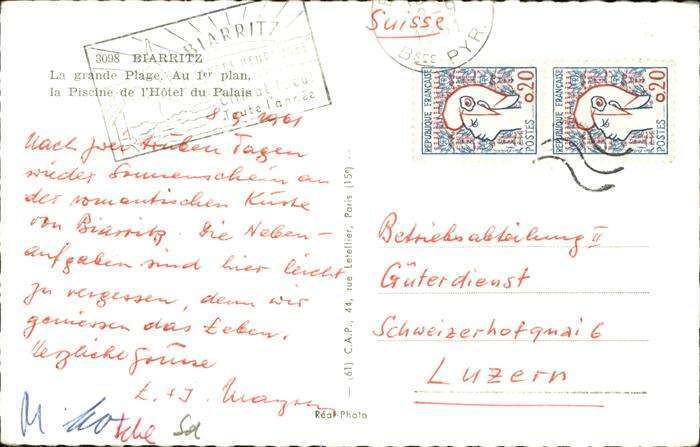 3098 BIARRITZ
La grande Plage. Au 1er plan,
la Piscine de l'Hôtel du Palais
BIARRITZ
8.9.1961
Nach zwei trüben Tagen
wieder Sonnenschein an
der romantischen Küste
von Biarritz. Die Neben-
aufgaben sind hier leicht
zu vergessen, denn wir
geniessen das Leben.
Herzliche Grüsse
(61) C.A.P., 44, rue Letellier, Paris (15e)
Réal-Photo
Suisse
Bses PYR.
REPUBLIQUE FRANÇAISE
0,20
POSTES
REPUBLIQUE FRANÇAISE
0,20
POSTES
Betriebsabteilung II
Güterdienst
Schweizerhofquai 6
Luzern